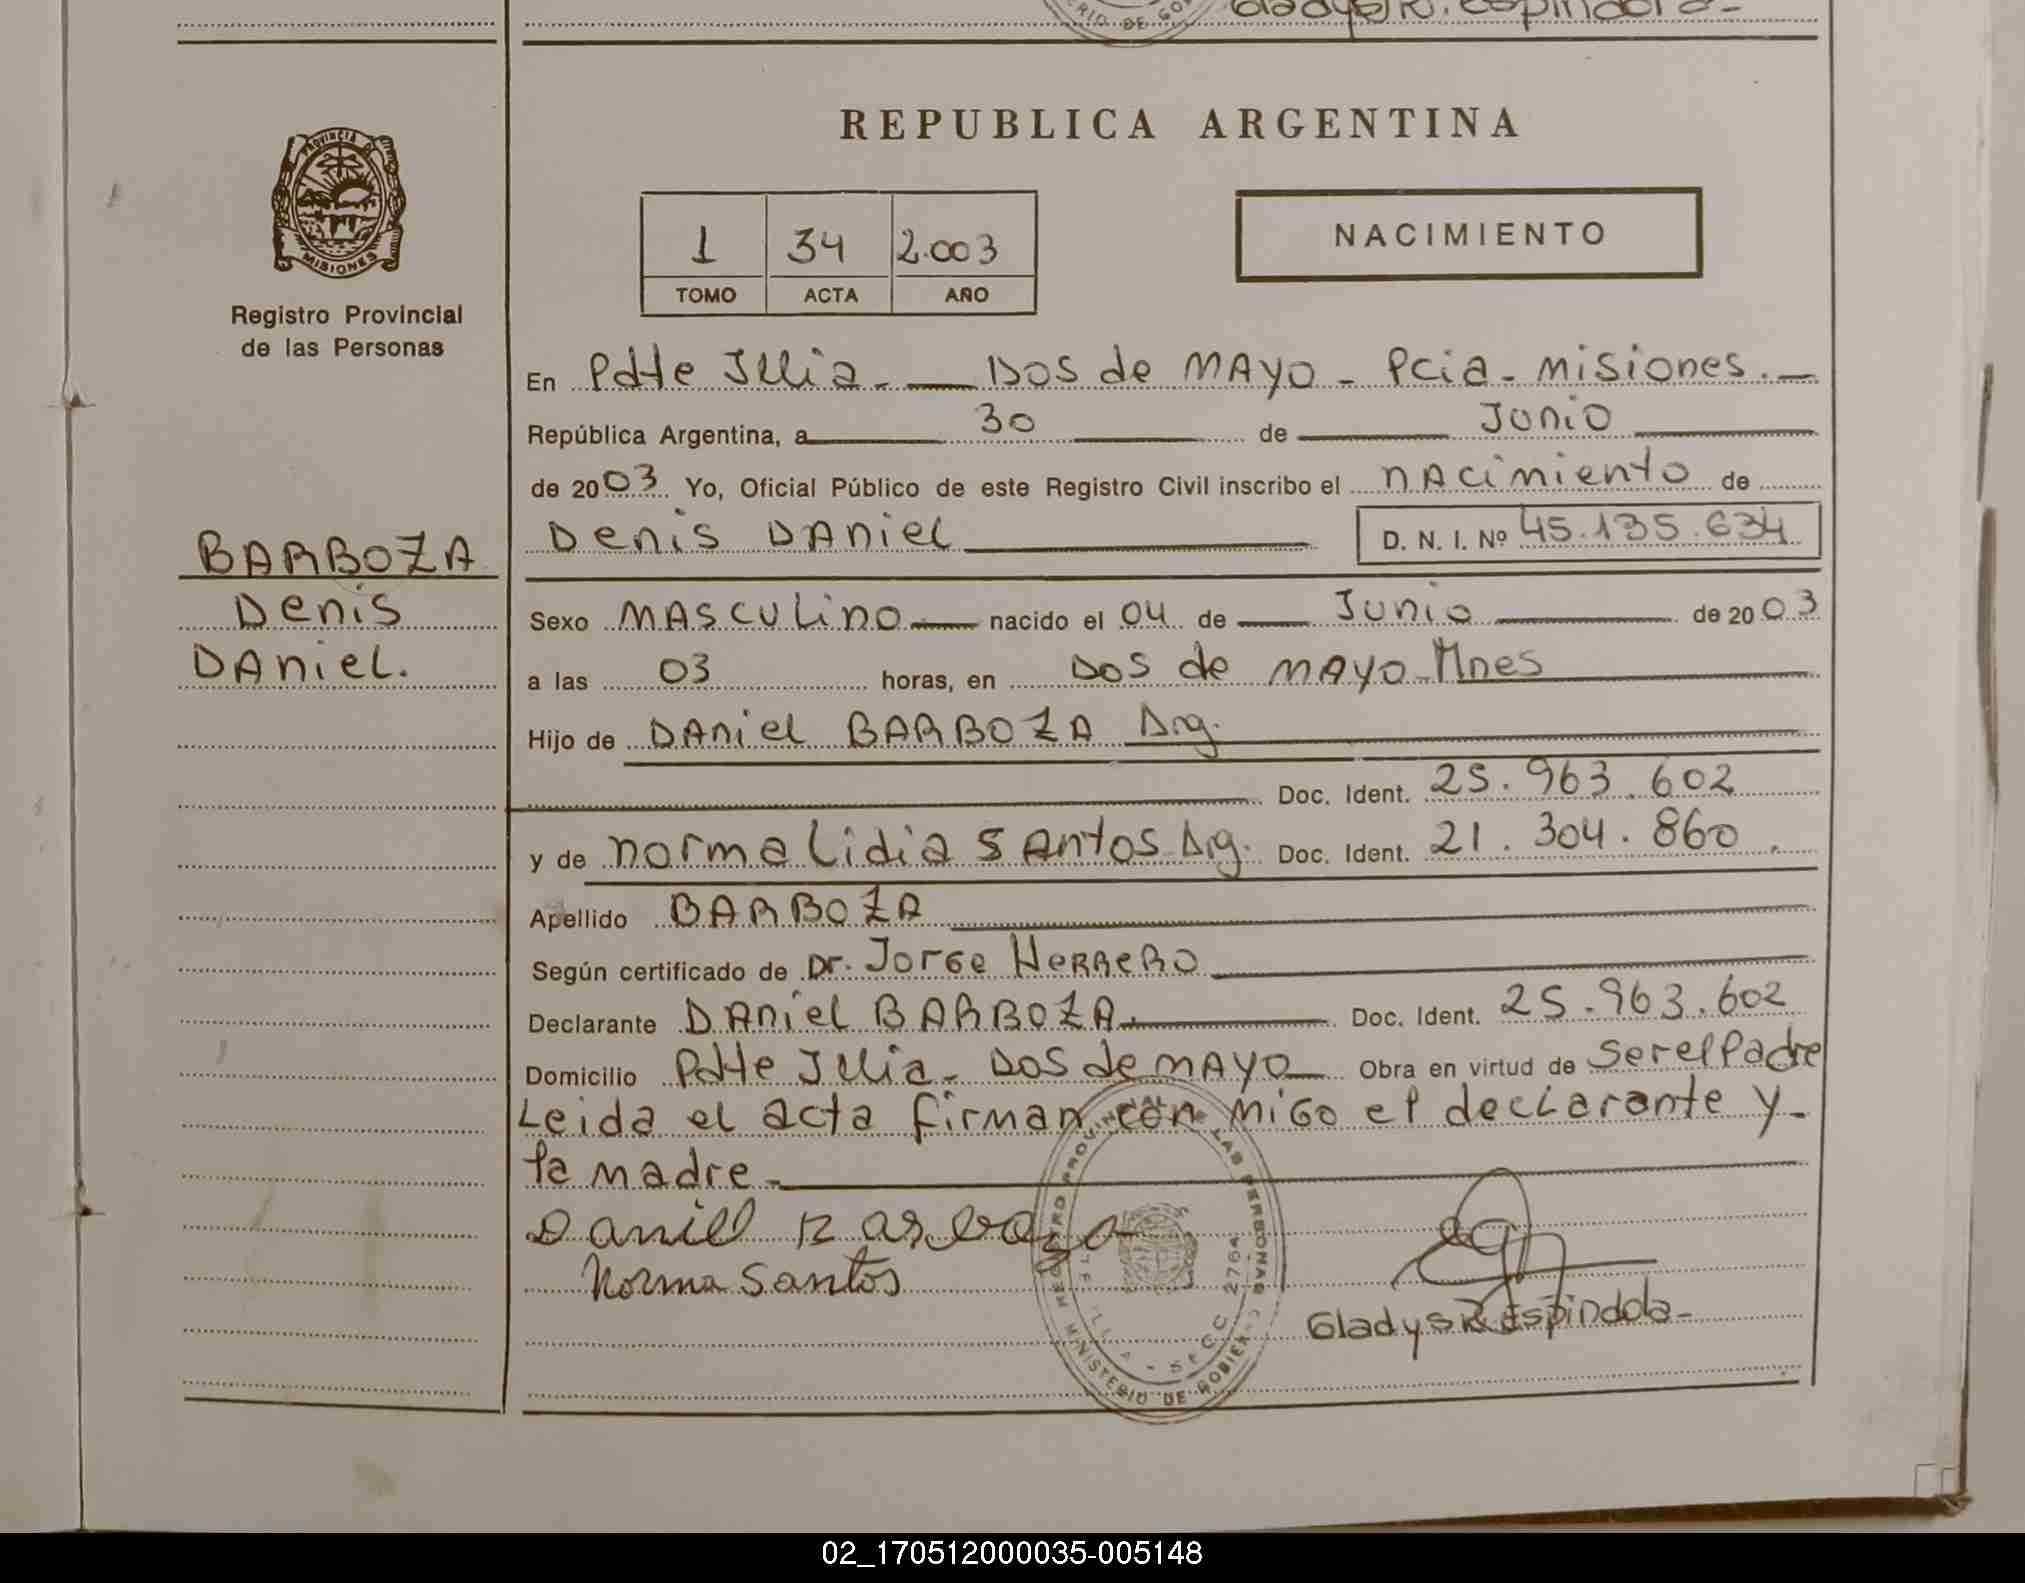 Gladys R. Espindola-
RIO DE GO
PROVINCIA DE
MISIONES
Registro Provincial
de las Personas
REPUBLICA ARGENTINA
1 34 2.003
TOMO ACTA AÑO
NACIMIENTO
En Pdte Illia - Dos de MAYO - Pcia - Misiones.-
República Argentina, a 30 de Junio
de 2003 Yo, Oficial Público de este Registro Civil inscribo el nacimiento de
Denis Daniel D. N. I. Nº 45.135.634
BARBOZA
Denis
Daniel.
Sexo MASCULINO nacido el 04 de Junio de 2003
a las 03 horas, en Dos de MAYO - Mnes
Hijo de Daniel BARBOZA Arg.
Doc. Ident. 25.963.602
y de Norma Lidia Santos Arg. Doc. Ident. 21.304.860.
Apellido BARBOZA
Según certificado de Dr. Jorge Herrero
Declarante Daniel BARBOZA. Doc. Ident. 25.963.602
Domicilio Pdte Illia - Dos de MAYO Obra en virtud de ser el Padre
Leida el acta firman con migo el declarante y-
la madre.-
Daniel Barboza
Norma Santos
Gladys R Espindola-
REGISTRO PROVINCIAL DE LAS PERSONAS
MINISTERIO DE GOBIERNO
ILLIA - SECC 2764
02_170512000035-005148